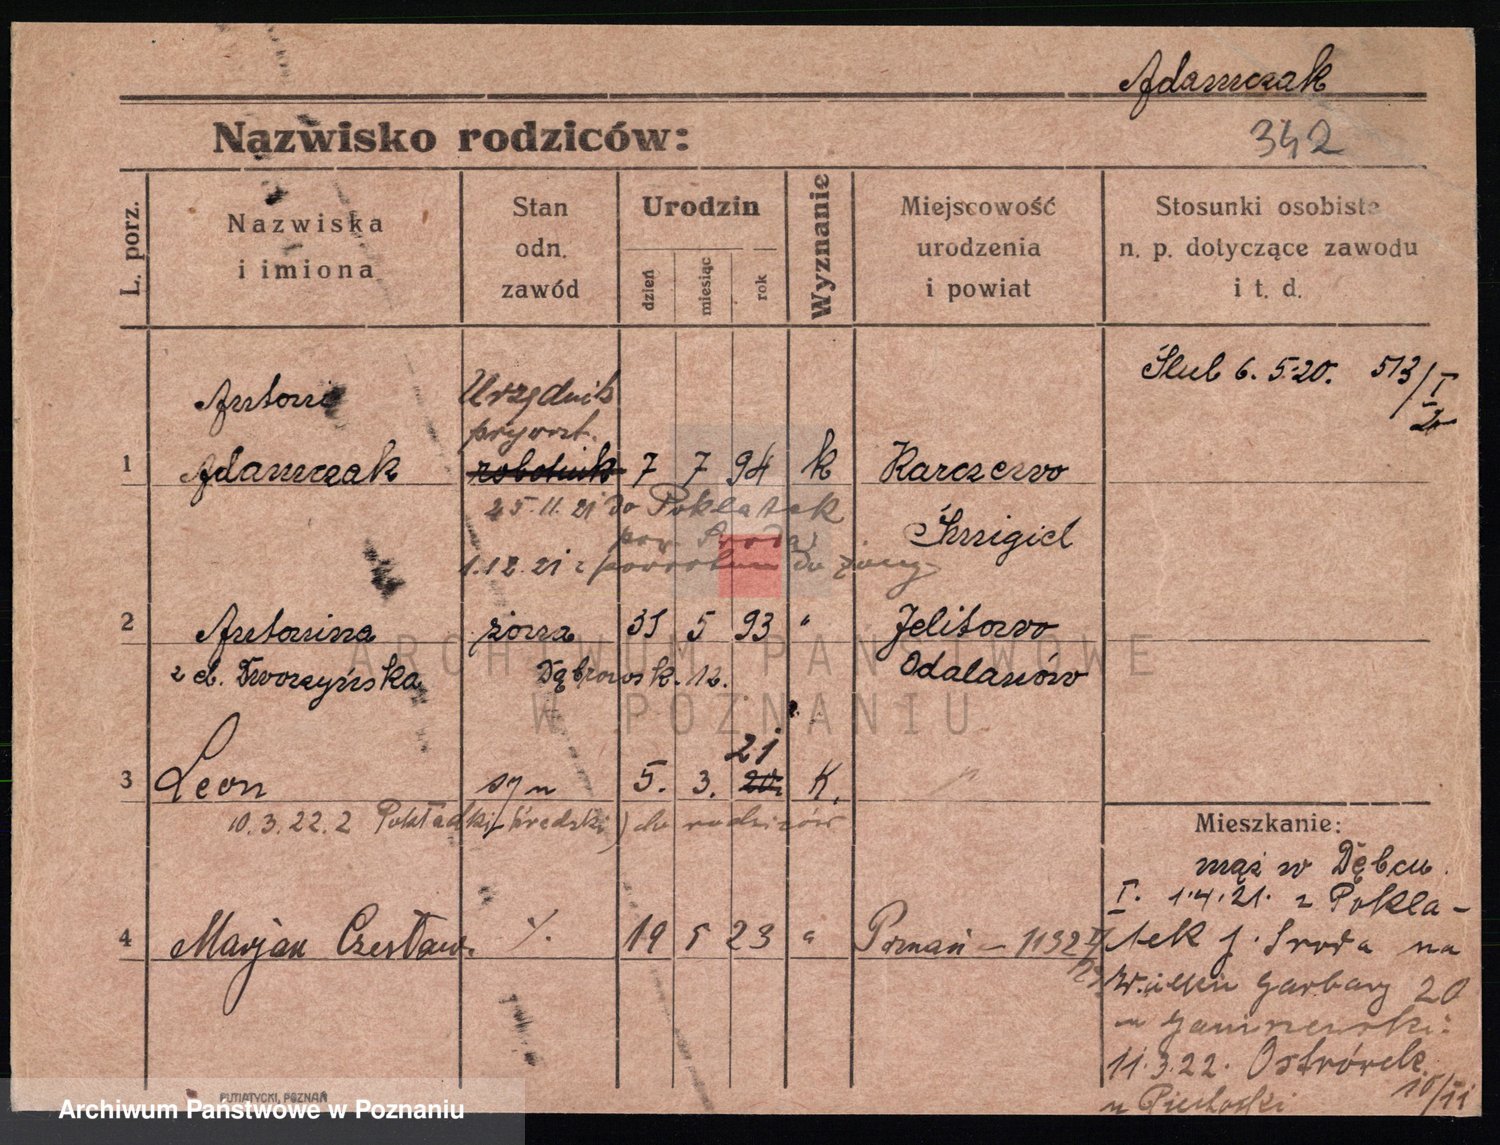 Adamczak
342
Nazwisko rodziców:
L. porz.
Nazwiska i imiona
Stan odn. zawód
Urodzin
dzień
miesiąc
rok
Wyznanie
Miejscowość urodzenia i powiat
Stosunki osobiste n. p. dotyczące zawodu i t. d.
Ślub 6. 5. 20. 513/I
Antoni
Urzędnik
prywat.
1 Adamczak robotnik 7 7 94 k Karczewo
25.11.21 do Pokłatek
Śmigiel
pow. Środa
1.12.21 z powrotem do żony
2 Antonina żona 31 5 93 " Jelitowo
z d. Tworzyńska Dąbrowsk. 12. Odalanów
21
3 Leon syn 5. 3. 20. K. "
10.3.22. z Pokładki średzki) do rodziców
Mieszkanie:
mąż w Dębcu.
I. 1.4.21. z Pokła-
4 Marjan Czesław. ./. 19 5 23 " Poznań - 1132
tek p. Środa na
Wielkie Garbary 20
u Ganiszewski:
11.3.22. Ostrówek
10/11
u Piechocki
PUTIATYCKI, POZNAŃ
ARCHIWUM PAŃSTWOWE
W POZNANIU
Archiwum Państwowe w Poznaniu